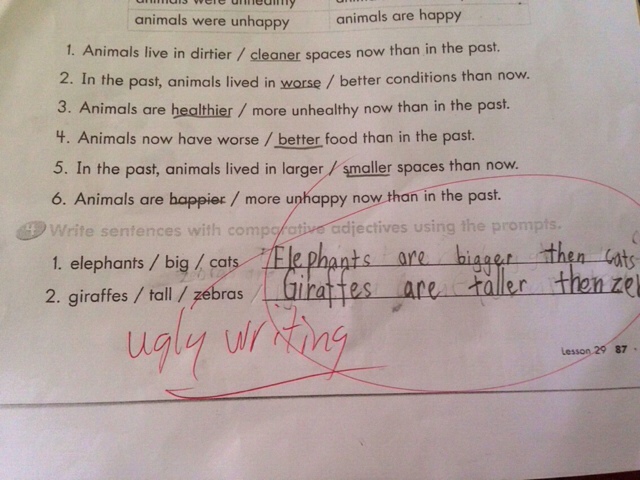 animals were unhealthy
animals were unhappy animals are happy
1. Animals live in dirtier / cleaner spaces now than in the past.
2. In the past, animals lived in worse / better conditions than now.
3. Animals are healthier / more unhealthy now than in the past.
4. Animals now have worse / better food than in the past.
5. In the past, animals lived in larger / smaller spaces than now.
6. Animals are happier / more unhappy now than in the past.
4 Write sentences with comparative adjectives using the prompts.
1. elephants / big / cats Elephants are bigger then cats
2. giraffes / tall / zebras Giraffes are taller then ze
ugly writing
Lesson 29 87